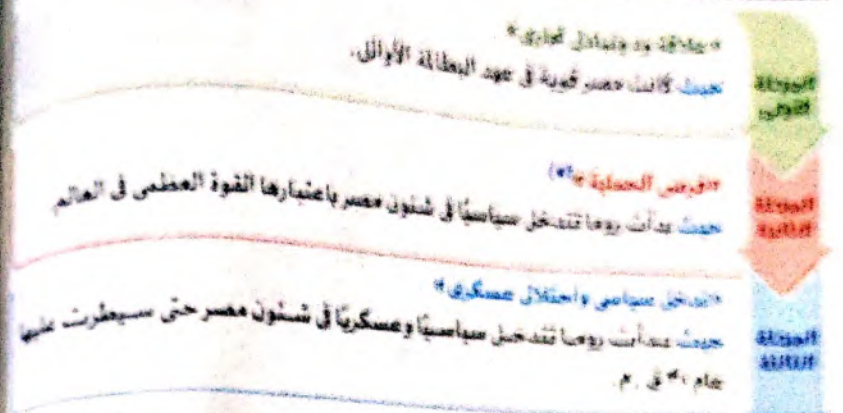 المرحلة الأولى
«علاقة ود وتبادل تجاري»
حيث كانت مصر قوية في عهد البطالمة الأوائل.
المرحلة الثانية
«فرض الحماية»(*)
حيث بدأت روما تتدخل سياسيًا في شئون مصر باعتبارها القوة العظمى في العالم
المرحلة الثالثة
«تدخل سياسي واحتلال عسكري»
حيث بدأت روما تتدخل سياسيًا وعسكريًا في شئون مصر حتى سيطرت عليها
عام ق.م.